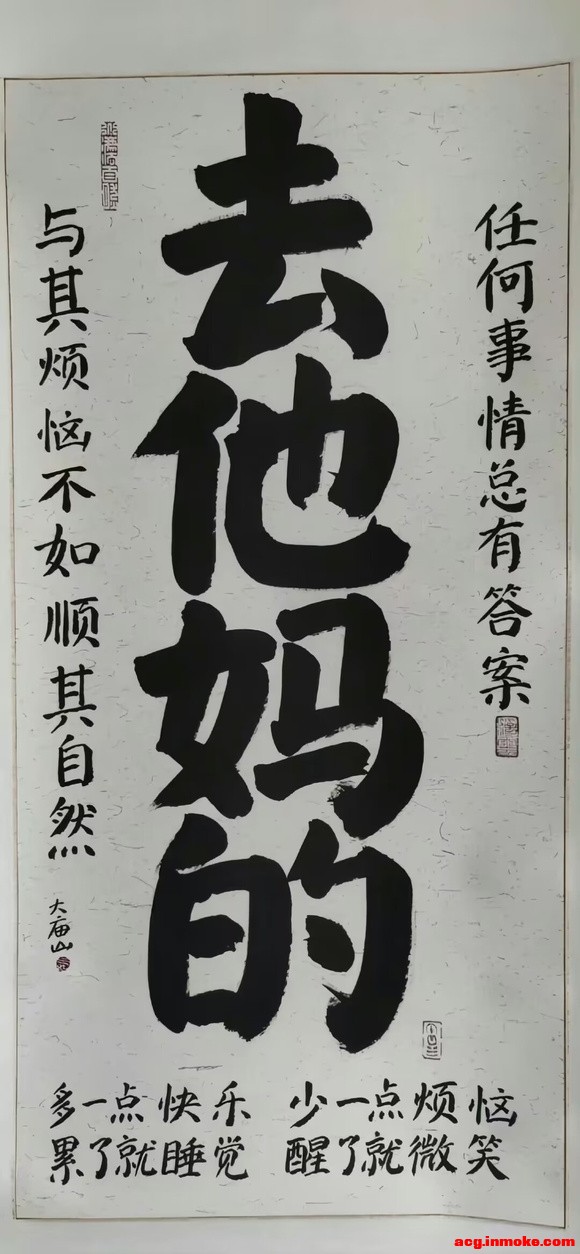 任何事情总有答案
去他妈的
与其烦恼不如顺其自然
大庙山
多一点快乐 少一点烦恼
累了就睡觉 醒了就微笑
acg.inmoke.com